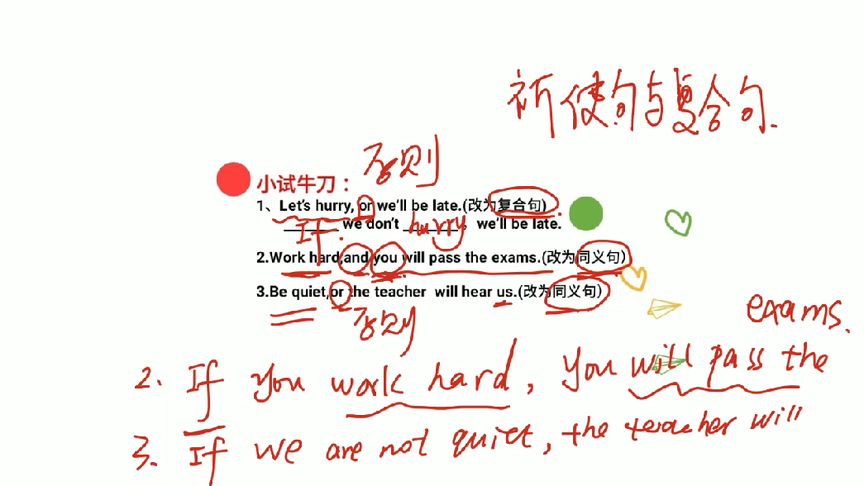 祈使句与复合句.
否则
小试牛刀：
1、Let's hurry, or we'll be late.(改为复合句)
If we don't hurry, we'll be late.
2.Work hard,and you will pass the exams.(改为同义句)
3.Be quiet,or the teacher will hear us.(改为同义句)
否则
exams.
2. If you work hard, you will pass the
3. If we are not quiet, the teacher will